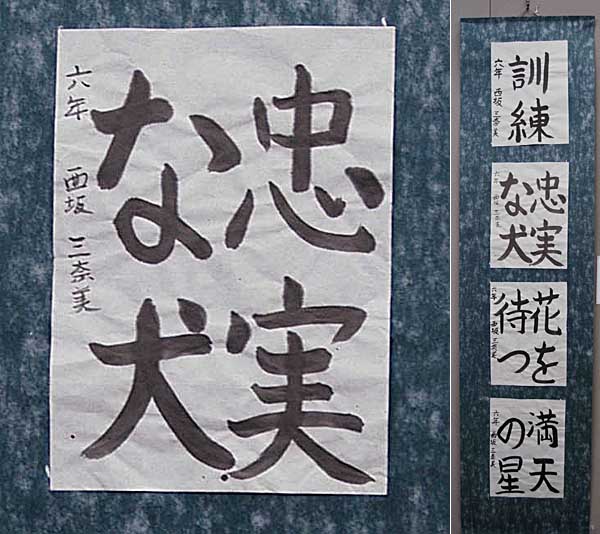 忠実
な犬
六年 西坂 三奈美
訓練
六年 西坂 三奈美
忠実
な犬
六年 西坂 三奈美
花を
待つ
六年 西坂 三奈美
満天
の星
六年 西坂 三奈美